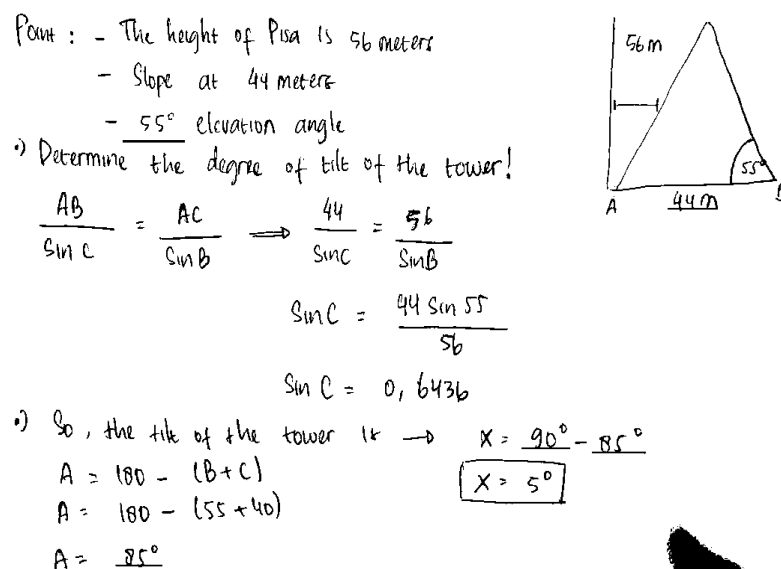 Point : - The height of Pisa is 56 meters
- Slope at 44 meters
- 55° elevation angle
•) Determine the degree of tilt of the tower!
AB / Sin C = AC / Sin B ⟹ 44 / Sin C = 56 / Sin B
Sin C = 44 Sin 55 / 56
Sin C = 0,6436
•) So, the tilt of the tower is → X = 90° - 85°
A = 180 - (B+C)
X = 5°
A = 180 - (55+40)
A = 85°
56 m
55°
A
44 m
B